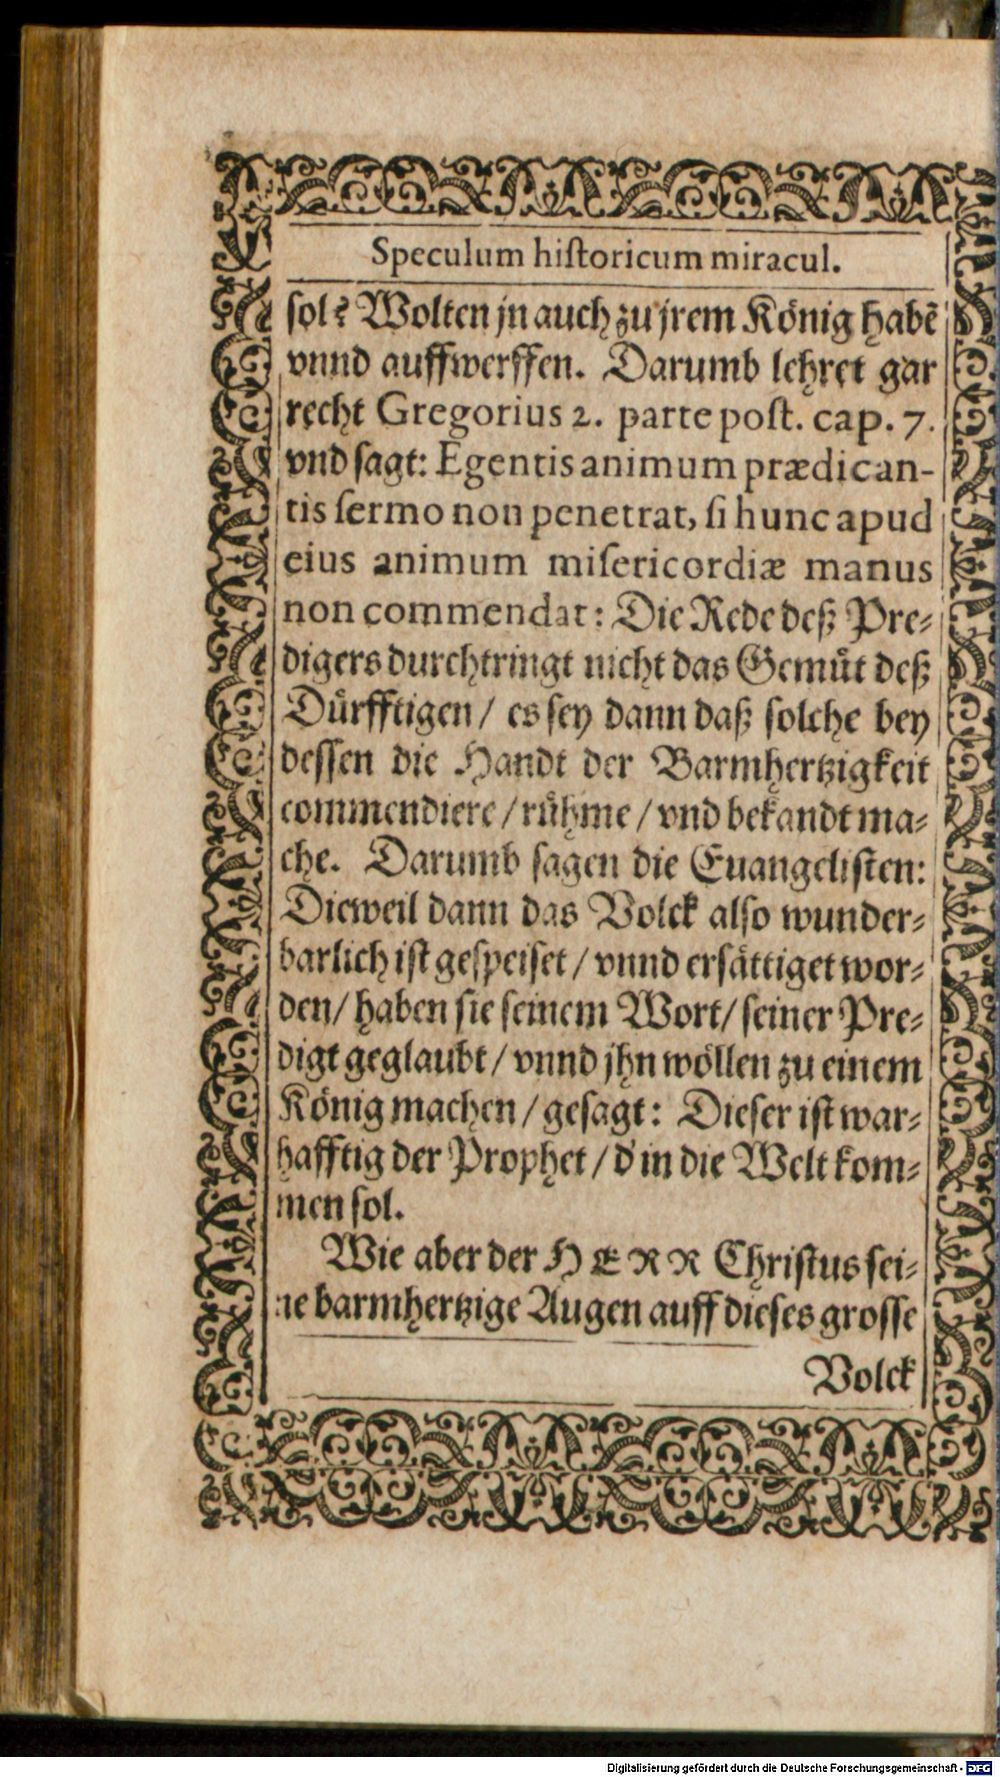 Speculum hiſtoricum miracul.
ſol? Wolten jn auch zu jrem König habẽ
vnnd auffwerffen. Darumb lehret gar
recht Gregorius 2. parte poſt. cap. 7.
vnd ſagt: Egentis animum prædican-
tis ſermo non penetrat, ſi hunc apud
eius animum miſericordiæ manus
non commendat: Die Rede deß Pre⸗
digers durchtringt nicht das Gemuͤt deß
Duͤrfftigen / es ſey dann daß ſolche bey
deſſen die Handt der Barmhertzigkeit
commendiere / ruͤhme / vnd bekandt ma⸗
che. Darumb ſagen die Euangeliſten:
Dieweil dann das Volck alſo wunder⸗
barlich iſt geſpeiſet / vnnd erſaͤttiget wor⸗
den / haben ſie ſeinem Wort / ſeiner Pre⸗
digt geglaubt / vnnd jhn woͤllen zu einem
Koͤnig machen / geſagt: Dieſer iſt war⸗
hafftig der Prophet / d' in die Welt kom⸗
men ſol.
Wie aber der HERR Chriſtus ſei⸗
ne barmhertzige Augen auff dieſes groſſe
Volck
Digitalisierung gefördert durch die Deutsche Forschungsgemeinschaft - DFG